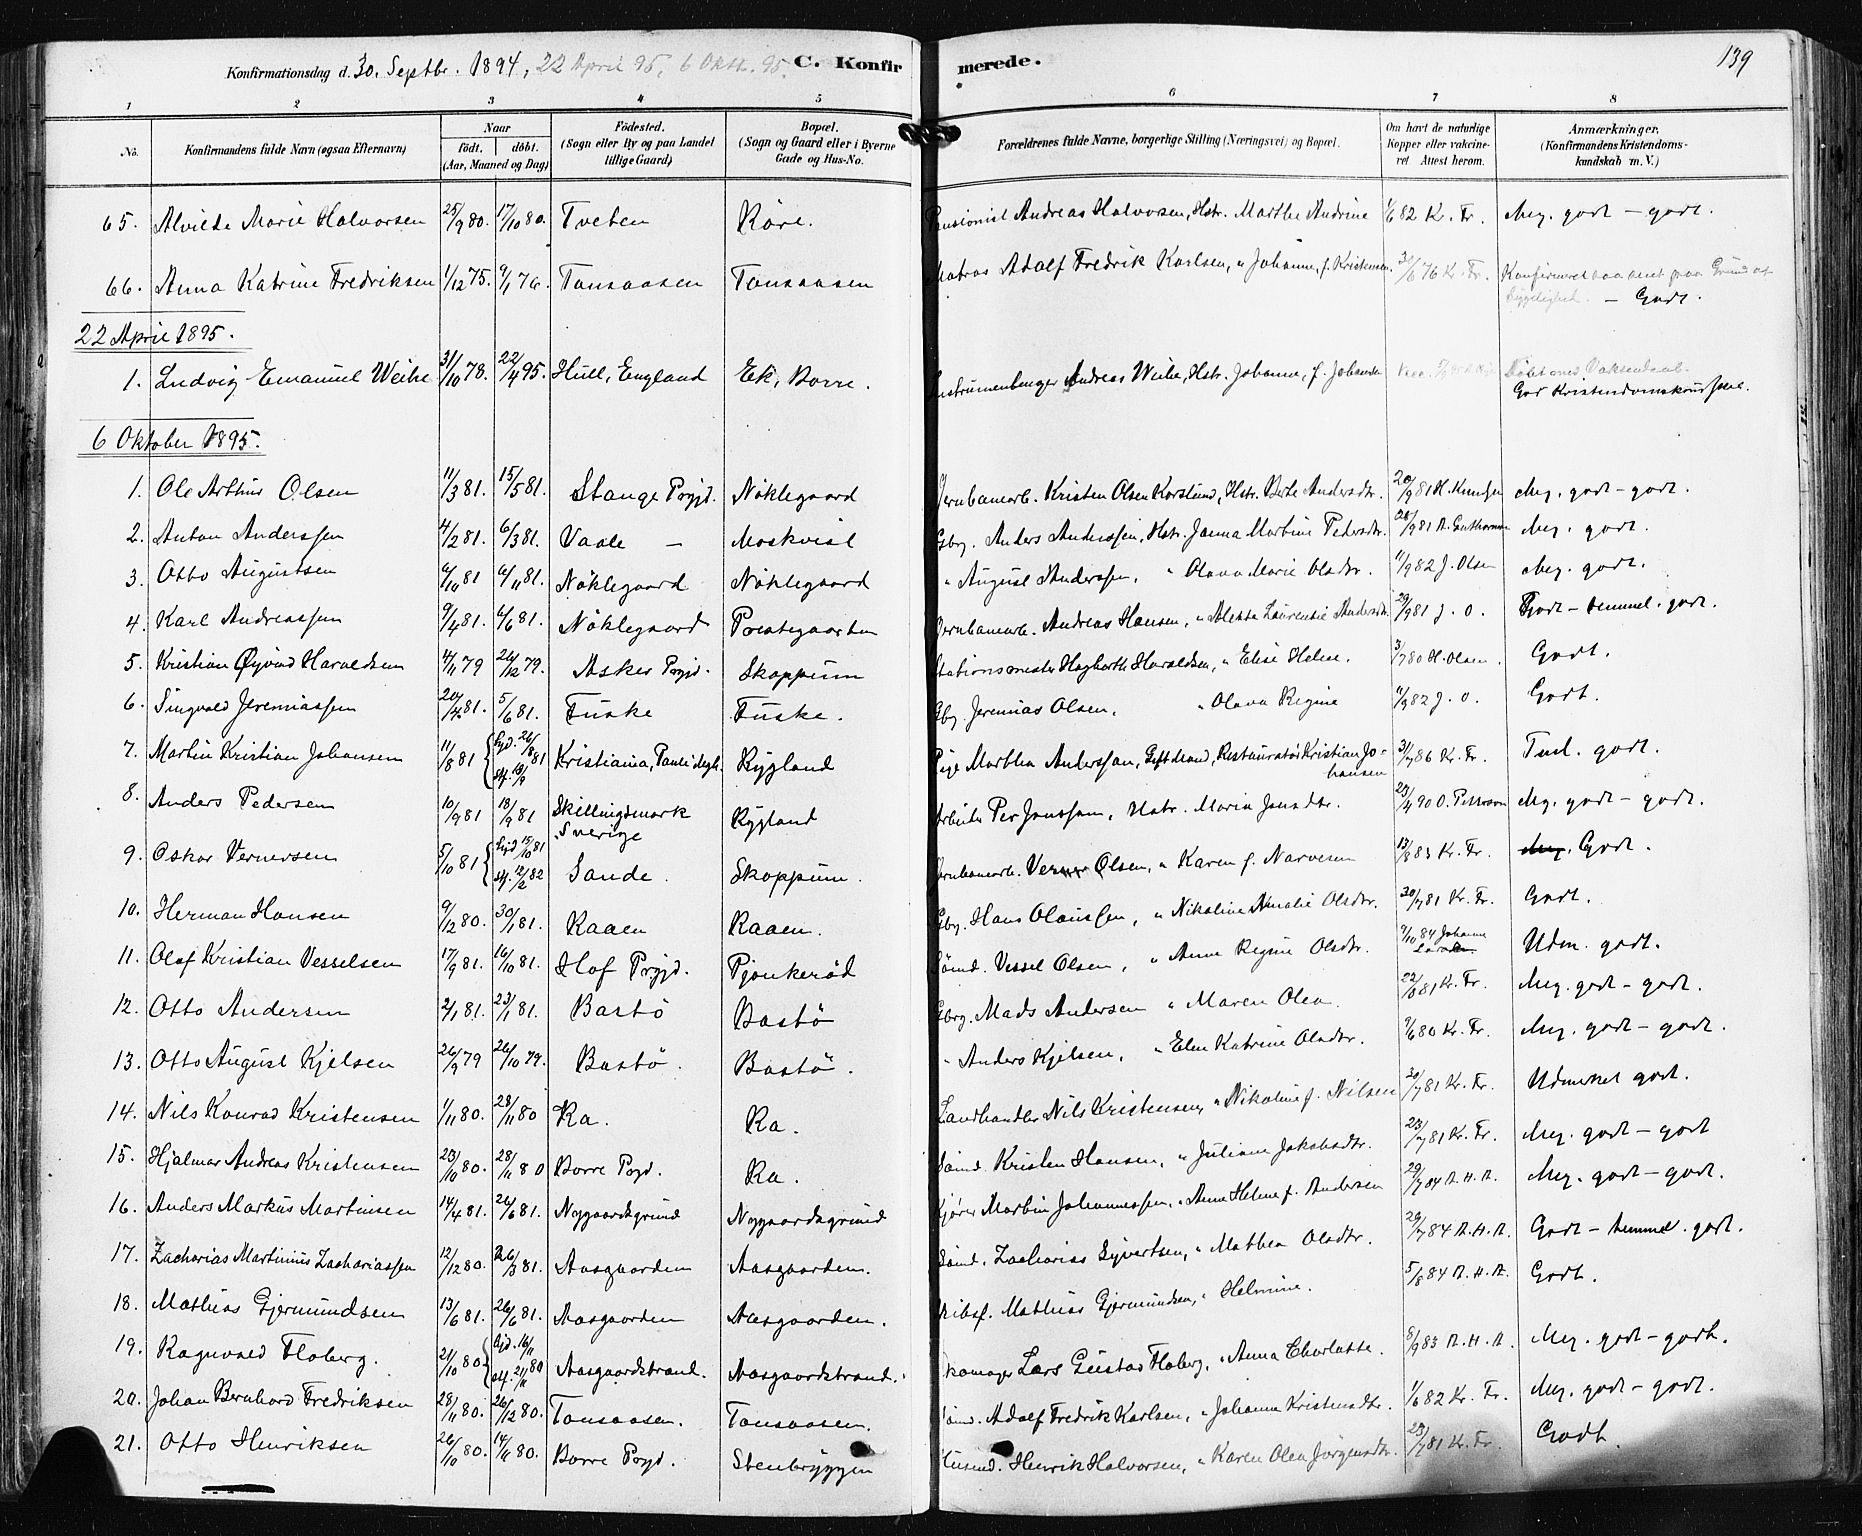 139
Konfirmationsdag d. 30. Septbr. 1894, 22 April 95, 6 Okth. 95. C. Konfirmerede.
1 2 3 4 5 6 7 8
No. Konfirmandens fulde Navn (ogsaa Efternavn) Naar født. døbt. (Aar, Maaned og Dag) Fødested. (Sogn eller By og paa Landet tillige Gaard) Bopæl. (Sogn og Gaard eller i Byerne Gade og Hus-No. Forældrenes fulde Navne, borgerlige Stilling (Næringsvei) og Bopæl. Om havt de naturlige Kopper eller vakcineret Attest herom. Anmærkninger, (Konfirmandens Kristendomskundskab m. V.)
65. Alvilde Marie Halvorsen 25/9 80. 17/10 80. Tveten Røre. Pensionist Andreas Halvorsen, Hstr. Marthe Andrine 1/6 82 Kr. Fr. Meg. godt – godt.
66. Anna Katrine Fredriksen 1/12 75. 9/1 76. Tonsaasen Tonsaasen Matros Adolf Fredrik Karlsen, " Johanne, f. Kristensen. 3/6 76 Kr. Fr. Konfirmeret saa sent paa Grund af Sygelighed. – Godt.
22 April 1895.
1. Ludvig Emanuel Weihe 31/10 78. 22/4 95. Hull, England Ek, Borre. Instrumentmager Andreas Weihe, Hstr. Johanne, f. Johansen God Kristendomskundskab.
6 Oktober 1895.
1. Ole Arthur Olsen 11/3 81. 15/5 81. Stange Prgjd. Nøklegaard Jernbanearb. Kristen Olsen Korslund, Hstr. Berte Andersdtr. 20/9 81 H. Knudsen Meg. godt – godt.
2. Anton Anderssen 4/2 81. 6/3 81. Vaale – Moskvist Gbg. Anders Anderssen, Hstr. Janna Martine Pedersdtr. 28/9 81 A. Guthormsen Meg. godt.
3. Otto Augustsen 6/10 81 6/11 81. Nøklegaard Nøklegaard " August Anderssen, " Olava Marie Olsdtr. 11/9 82 J. Olsen Meg. godt.
4. Karl Andreassen 9/4 81. 6/6 81. Nøklegaard Prestegaarden Jernbanearb. Andreas Hansen, " Alette Laurentie Andersdtr. 29/9 81 J. O. Godt – temmel. godt.
5. Kristian Øyvind Haraldsen 4/11 79 26/12 79. Asker Prgjd. Skoppum Stationsmester Hagbarth Haraldsen, " Elise Helene. 3/7 80 H. Olsen. Godt.
6. Singvald Jeremiassen 20/4 81. 5/6 81. Fuske Fuske. Gbg. Jeremias Olsen, " Olava Regine 11/9 82 J. O. Godt.
7. Martin Kristian Johansen 11/8 81 Kristiania, Pauli Mgh. Rygland Pige Marthea Anderssen, Gift Mand, Restauratør Kristian Johansen 31/7 86 Kr. Fr. Tml. godt.
8. Anders Pedersen 10/9 81 18/9 81 Skillingsmark Sverige Rygland Arbeider Per Jonssson, Hstr. Maria Jonsdtr. 23/4 90 O. Petterson Meg. godt – godt.
9. Oskar Vernersen 5/10 81 Hjd. 15/10 81 stf. 12/2 82 Sande. Skoppum. Jernbanearb. Verner Olsen, " Karen f. Narvesen 13/8 83 Kr. Fr. Godt.
10. Herman Hansen 9/12 80. 30/1 81. Raaen Raaen. Gbg. Hans Olaussen, " Nikoline Amalie Olsdtr. 20/7 81 Kr. Fr. Godt.
11. Olaf Kristian Vesselsen 17/9 81. 16/10 81. Hof Prgjd. Pjonkerød Sømd. Vessel Olsen, " Anne Regine Olsdtr. 9/10 84 Johanne Udm. godt.
12. Otto Andersen 2/1 81. 23/1 81. Bastø Bastø Gbrg. Mads Andersen " Maren Olea 22/8 81 Kr. Fr. Meg. godt – godt.
13. Otto August Kjelsen 26/9 79 26/10 79. Bastø. Bastø. " Anders Kjelsen, " Elen Katrine Olsdtr. 9/6 80 Kr. Fr. Meg. godt – godt.
14. Nils Konrad Kristensen 1/11 80. 28/11 80 Ra. Ra. Landhandler Nils Kristensen, " Nikoline f. Nilsen 20/7 81 Kr. Fr. Udmerket godt.
15. Hjalmar Andreas Kristensen 23/10 80. 28/11 80 Borre Prgd. Ra. Sømd. Kristen Hansen, " Juliane Jakobsdtr. 23/7 81 Kr. Fr. Meg. godt – godt
16. Anders Markus Martinsen 14/4 81. 26/6 81. Nygaardsgrund Nygaardsgrund Kjører Martin Johannessen, " Anne Helene f. Andersen 29/7 84 A. H. A. Meg. godt – godt.
17. Zacharias Martinius Zachariassen 12/12 80. 26/3 81. Aasgaarden Aasgaarden. Sømd. Zacharias Syvertsen, " Mathea Olsdtr. 29/7 84 A. H. A. Godt – temmel. godt.
18. Mathias Gjermundsen 13/6 81. 26/6 81. Aasgaarden Aasgaarden. Skibsf. Mathias Gjermundsen, " Helmine. 5/8 84 A. H. A. Godt.
19. Ragnvald Floberg. 21/10 80 Hjd. 16/11 stf. 21/11 80 Aasgaardstrand. Aasgaardstrand. Skomager Lars Gustav Floberg, " Anna Charlotte. 8/9 83 A. H. A. Meg. godt – godt.
20. Johan Bernhard Fredriksen 28/11 80. 26/12 80. Tonsaasen. Tonsaasen. Sømd. Adolf Fredrik Karlsen, " Johanne Kristensdtr. 1/6 82 Kr. Fr. Meg. godt – godt.
21. Otto Henriksen 26/10 80. 14/11 80. Borre Prgd. Stenbryggen Husmd. Henrik Halvorsen, " Karen Olea Jörgensdtr. 23/7 81 Kr. Fr. Godt.